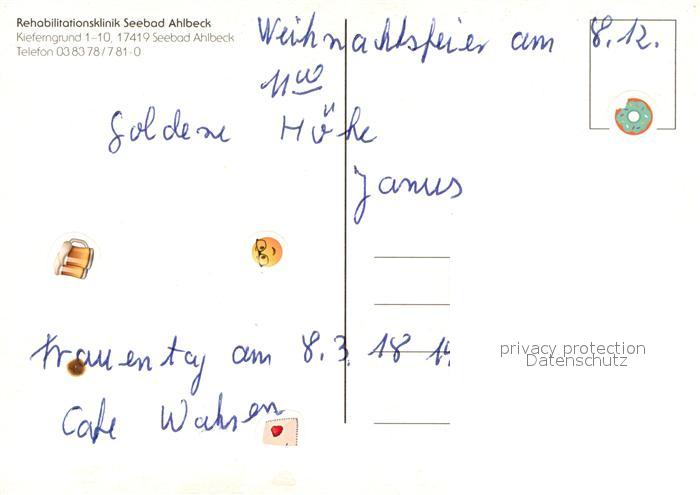 Rehabilitationsklinik Seebad Ahlbeck
Kieferngrund 1-10, 17419 Seebad Ahlbeck
Telefon 03 83 78 / 7 81-0
Weihnachtsfeier am 8.12.
11 00
Goldene Höhe
Janus
Frauentag am 8.3. 18
Cafe
privacy protection
Datenschutz